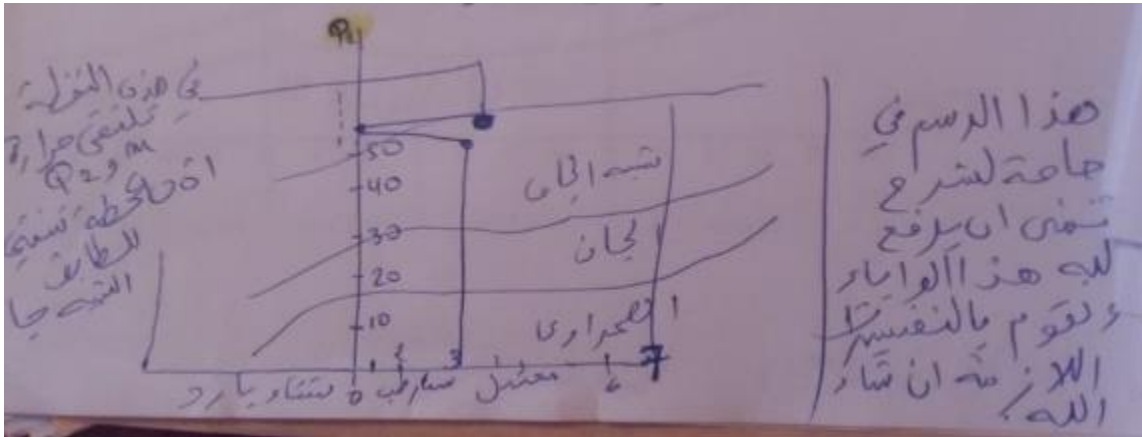 هذا الرسم في
حاجة لشرح
نتمنى ان يرفع
الله هذا الوباء
و نقوم بالتفسيرات
اللازمة ان شاء
الله.
في هذه النقطة
تلتقي حرارة
m و Q2
المحطة تنتمي
للطابق
الشبه جا
Q2
50
40
30
20
10
شبه الجاف
الجاف
الصحراوي
0 2 3 6 7
شتاء بارد
معتدل